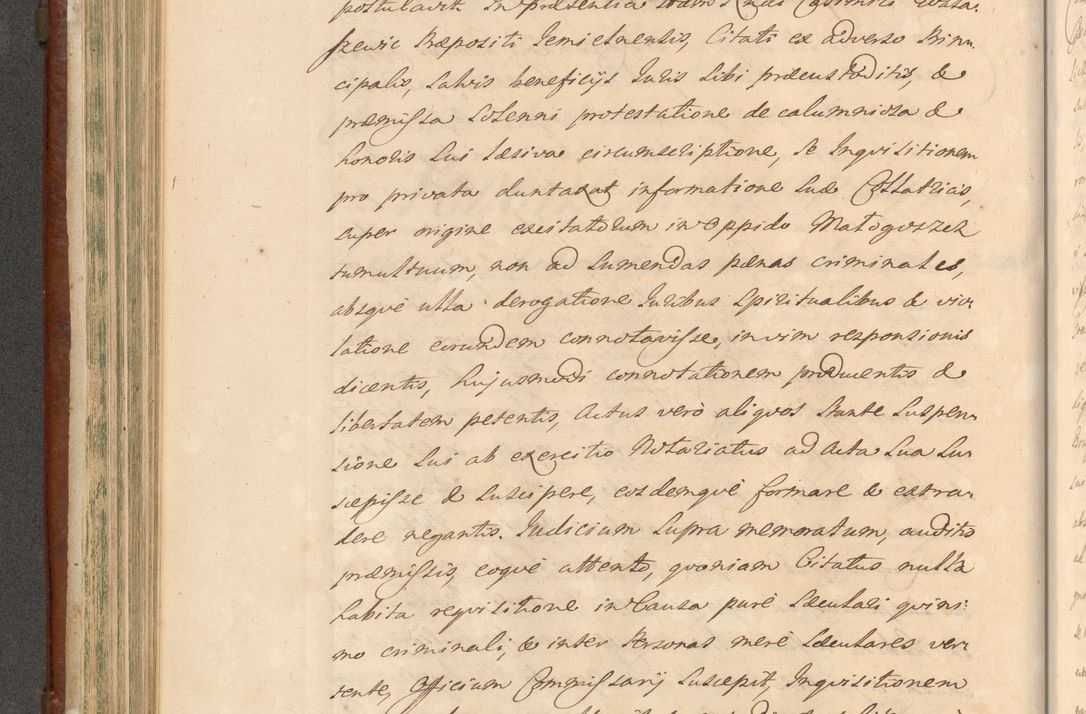 postulavit in præsentia
szewic Præpositi Jemielnensis, Citati ex adverso Prin,
cipalis, Salvis beneficijs Juris Sibi præcustoditis, &
præmissa Solenni protestatione de calumniosa &
honoris Sui læsiva circumscriptione, Se Inquisitionem
pro privata duntaxat informatione Suæ Collatricis,
super origine excitatorum in Oppido Małogoszcz
tumultuum, non ad Sumendas pænas criminales,
absque ulla derogatione Juribus Spiritualibus & vio:
latione eorundem connotavisse, in vim responsionis
dicentis, hujusmodi connotationem producentis &
libertatem petentis, Actus verò aliquos Stante Suspen,
sione Sui ab exercitio Notariatus ad Acta Sua Su,
scepisse & Suscipere, eosdemquè formare & extra,
dere negantis. Judicium Supra memoratum, auditis
præmissis, eoquè attento, quoniam Citatus nulla
habita requisitione in Causa purè Sæculari quini:
mo criminali, & inter Personas merè Sæculares ver:
tente, Officium Commissarij Suscepit, Inquisitionem